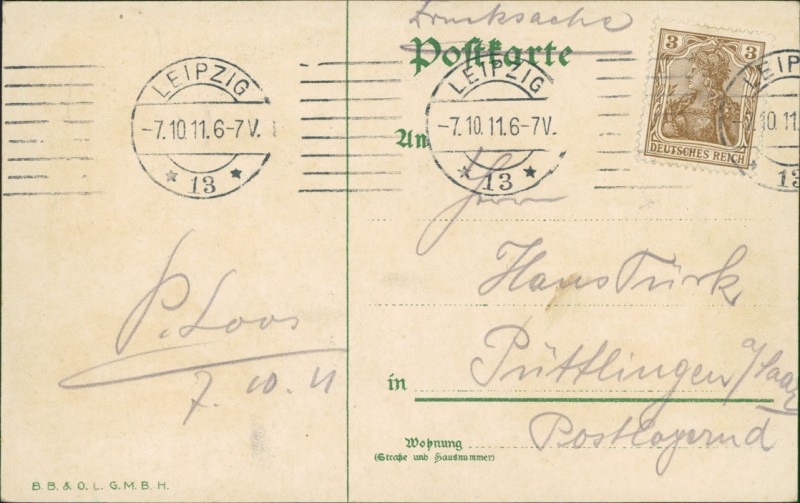 Drucksache
Postkarte
LEIPZIG
-7.10.11.6-7V.
* 13 *
LEIPZIG
-7.10.11.6-7V.
* 13 *
LEIP
10.11
13
3 3
DEUTSCHES REICH
An
Herrn
Hans Türk
in Püttlingen a/Saar
Postlagernd
Wohnung
(Straße und Hausnummer)
P. Loos
7. 10. 11
B. B. & O. L. G. M. B. H.